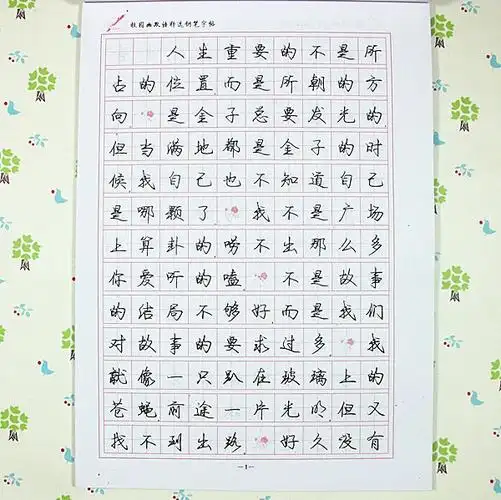 校园幽默语精选钢笔字帖
人生重要的不是所
占的位置而是所朝的方
向 是金子总要发光的
但当满地都是金子的时
候我自己也不知道自己
是哪颗了 我不是广场
上算卦的唠不出那么多
你爱听的嗑 不是故事
的结局不够好而是我们
对故事的要求过多 我
就像一只趴在玻璃上的
苍蝇前途一片光明但又
找不到出路 好久没有
—1—